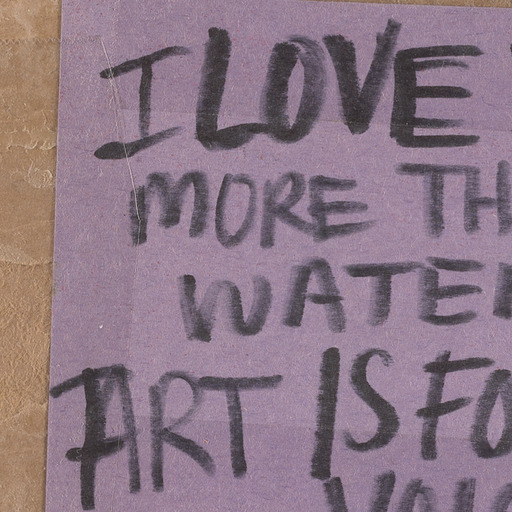 I LOVE
MORE TH
WATE
ART IS FO